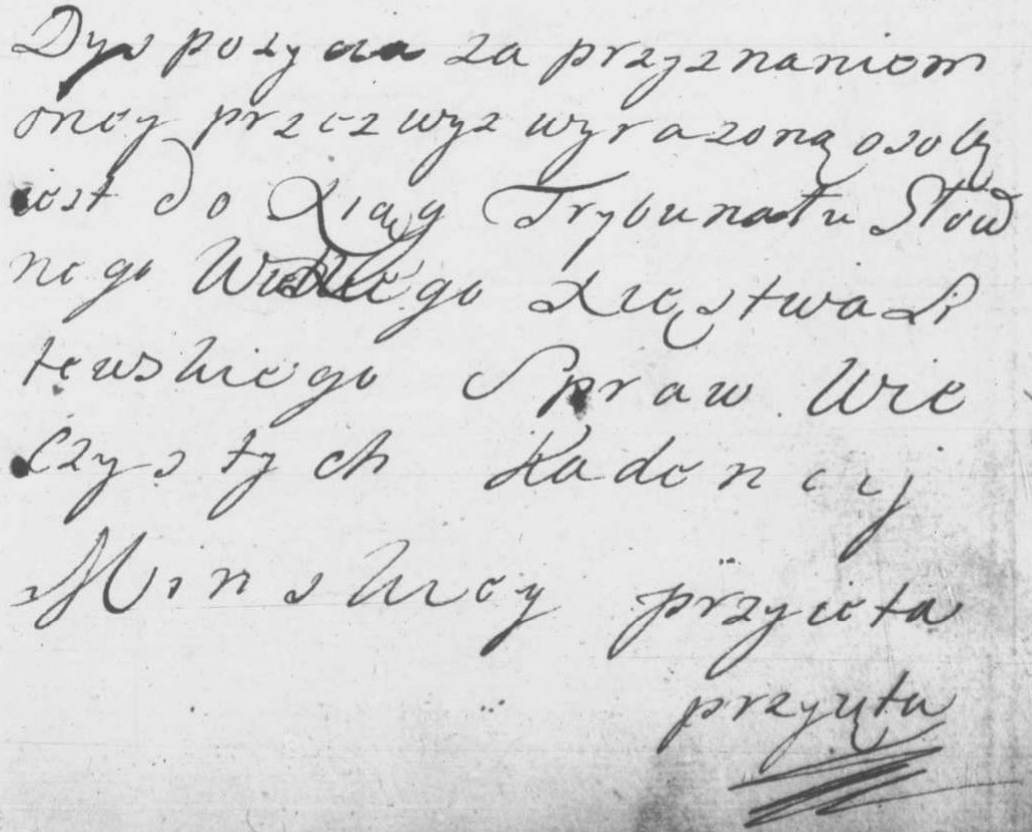 Dyspozycia za przyznaniem
oney przez wyz wyrazoną osobę
iest do Xiąg Trybunału Głow
nego Wielkiego Xięstwa Li
tewskiego Spraw Wie
czystych Kadencij
Minskiey przyieta
przyięta